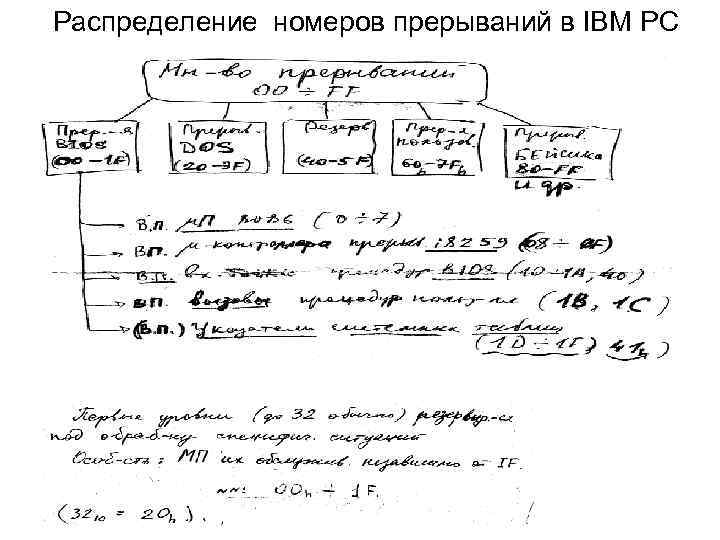 Распределение номеров прерываний в IBM PC
Мн-во прерываний
00 ÷ FF
Прер-я
BIOS
(00-1F)
Прерыв.
DOS
(20-3F)
Резерв
(40-5F)
Прер-я
пользов.
60h-7Fh
Прерыв.
БЕЙСИКА
80-FF
и др.
В.П. МП 8086 (0 ÷ 7)
ВП. м-контроллера прерыв i8259 (08 ÷ 0F)
В.П. процедур BIOS (10-1A, 40)
ВП. вызовы процедур польз-ля (1B, 1C)
(В.П.) Указатели системных таблиц
(1D ÷ 1F) 41h
Первые уровни (до 32 обычно) резервир-ся
под обраб-ку специфич. ситуаций
Особ-сть: МП их обслужив. независимо от IF.
NN: 00h ÷ 1F.
(32₁₀ = 20h).